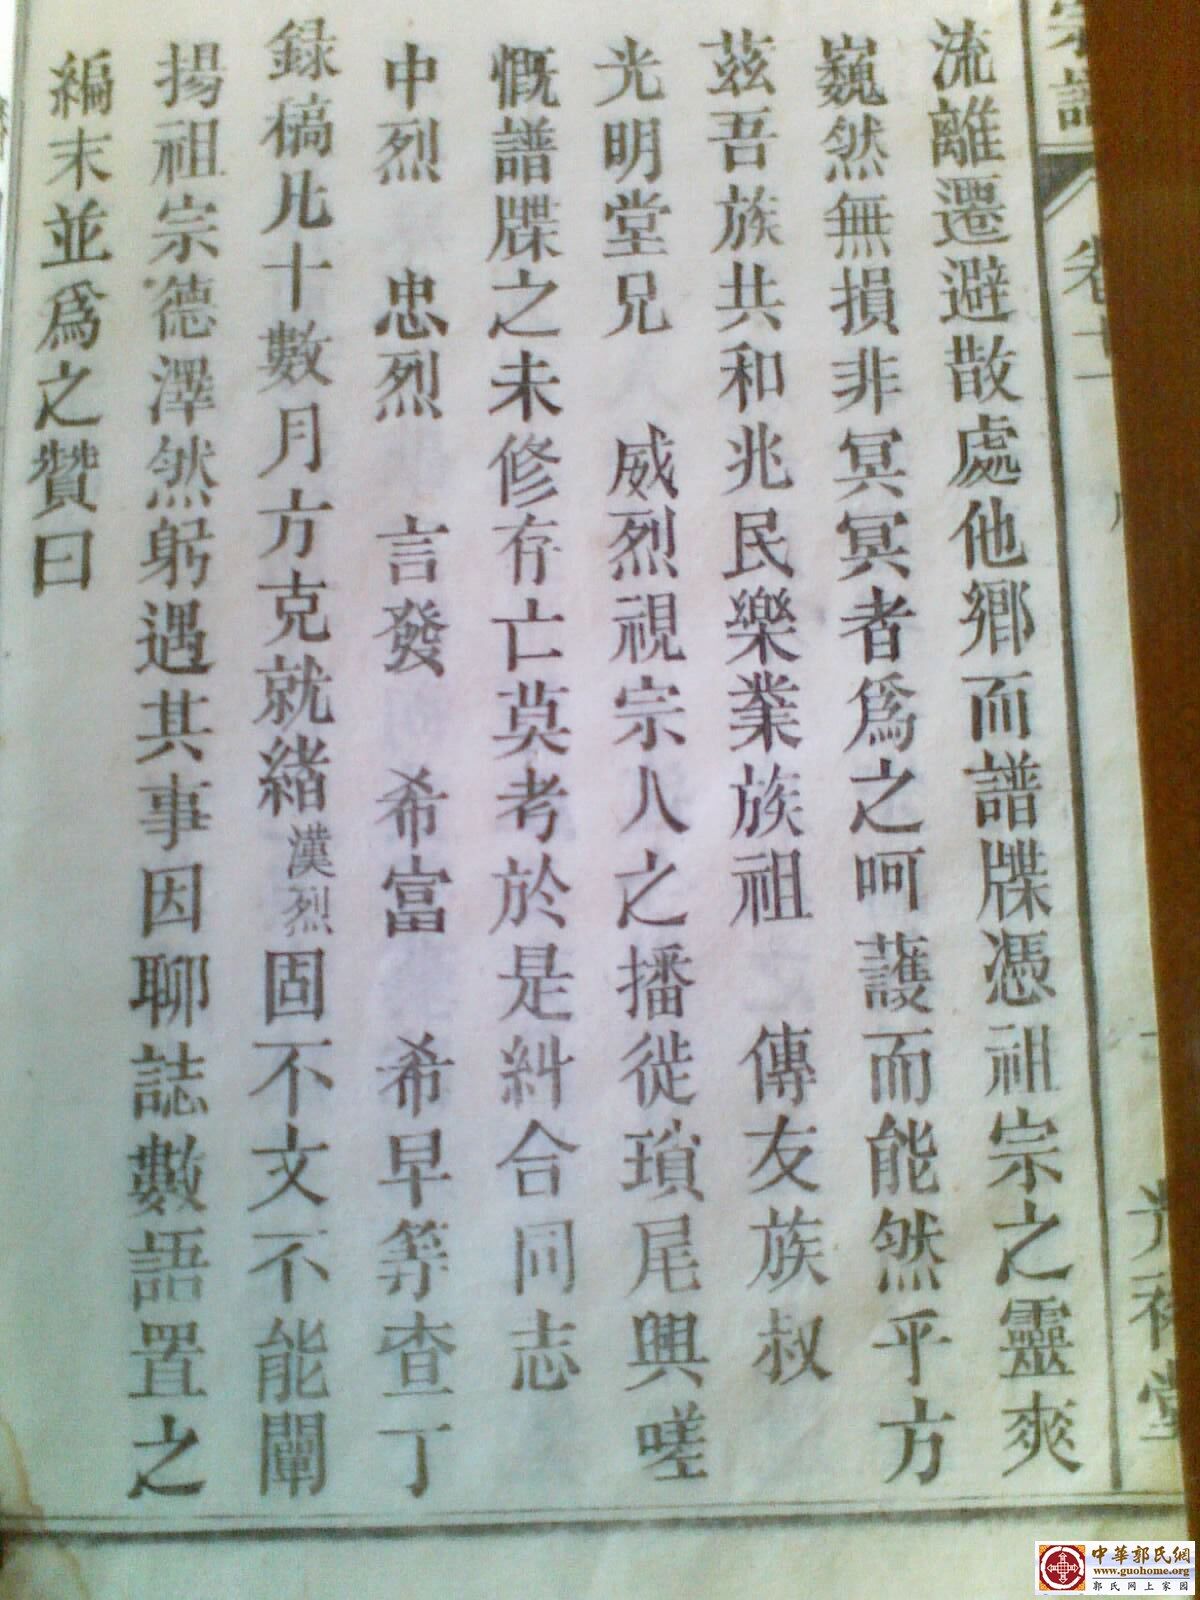 流離遷避散處他鄉而譜牒憑祖宗之靈爽
巍然無損非冥冥者爲之呵護而能然乎方
茲吾族共和兆民樂業族祖 傳友族叔
光明堂兄 威烈視宗人之播徙瑣尾興嗟
慨譜牒之未修存亡莫考於是糾合同志
中烈 忠烈 言發 希富 希早等查丁
録稿凡十數月方克就緒漢烈固不文不能闡
揚祖宗德澤然躬遇其事因聊誌數語置之
編末並爲之贊曰
中華郭氏網
www.guohome.org
郭氏网上家园